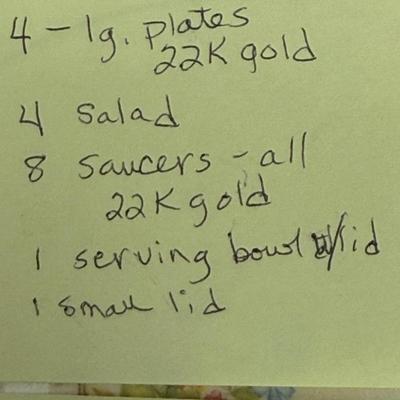 4 - lg. plates
22K gold
4 salad
8 saucers - all
22K gold
1 serving bowl w/lid
1 small lid